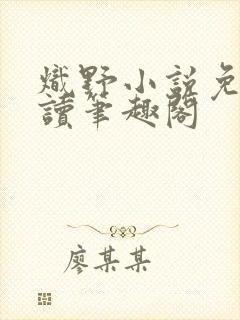 熾野小說免
讀筆趣閣
廖某某